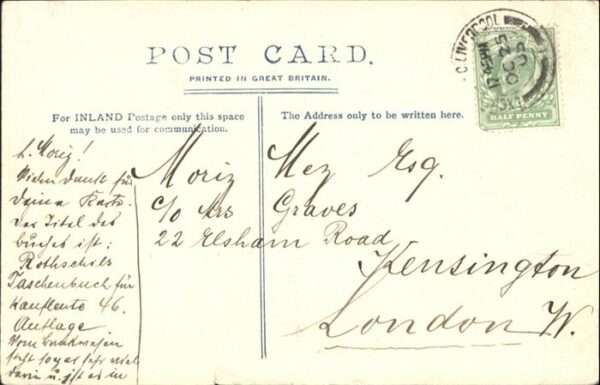 POST CARD.
PRINTED IN GREAT BRITAIN.
For INLAND Postage only this space
may be used for communication.
The Address only to be written here.
LIVERPOOL
OC 25
HALF PENNY
L. Moriz!
Vielen Dank für
Deine Karte.
Der Titel des
Buches ist:
Rothschilds
Taschenbuch für
Kaufleute 46.
Auflage
Vom Bankwesen
sehr viel
darin u. ist es im
Moriz Mez Esq.
c/o Mrs Graves
22 Elsham Road
Kensington
London W.